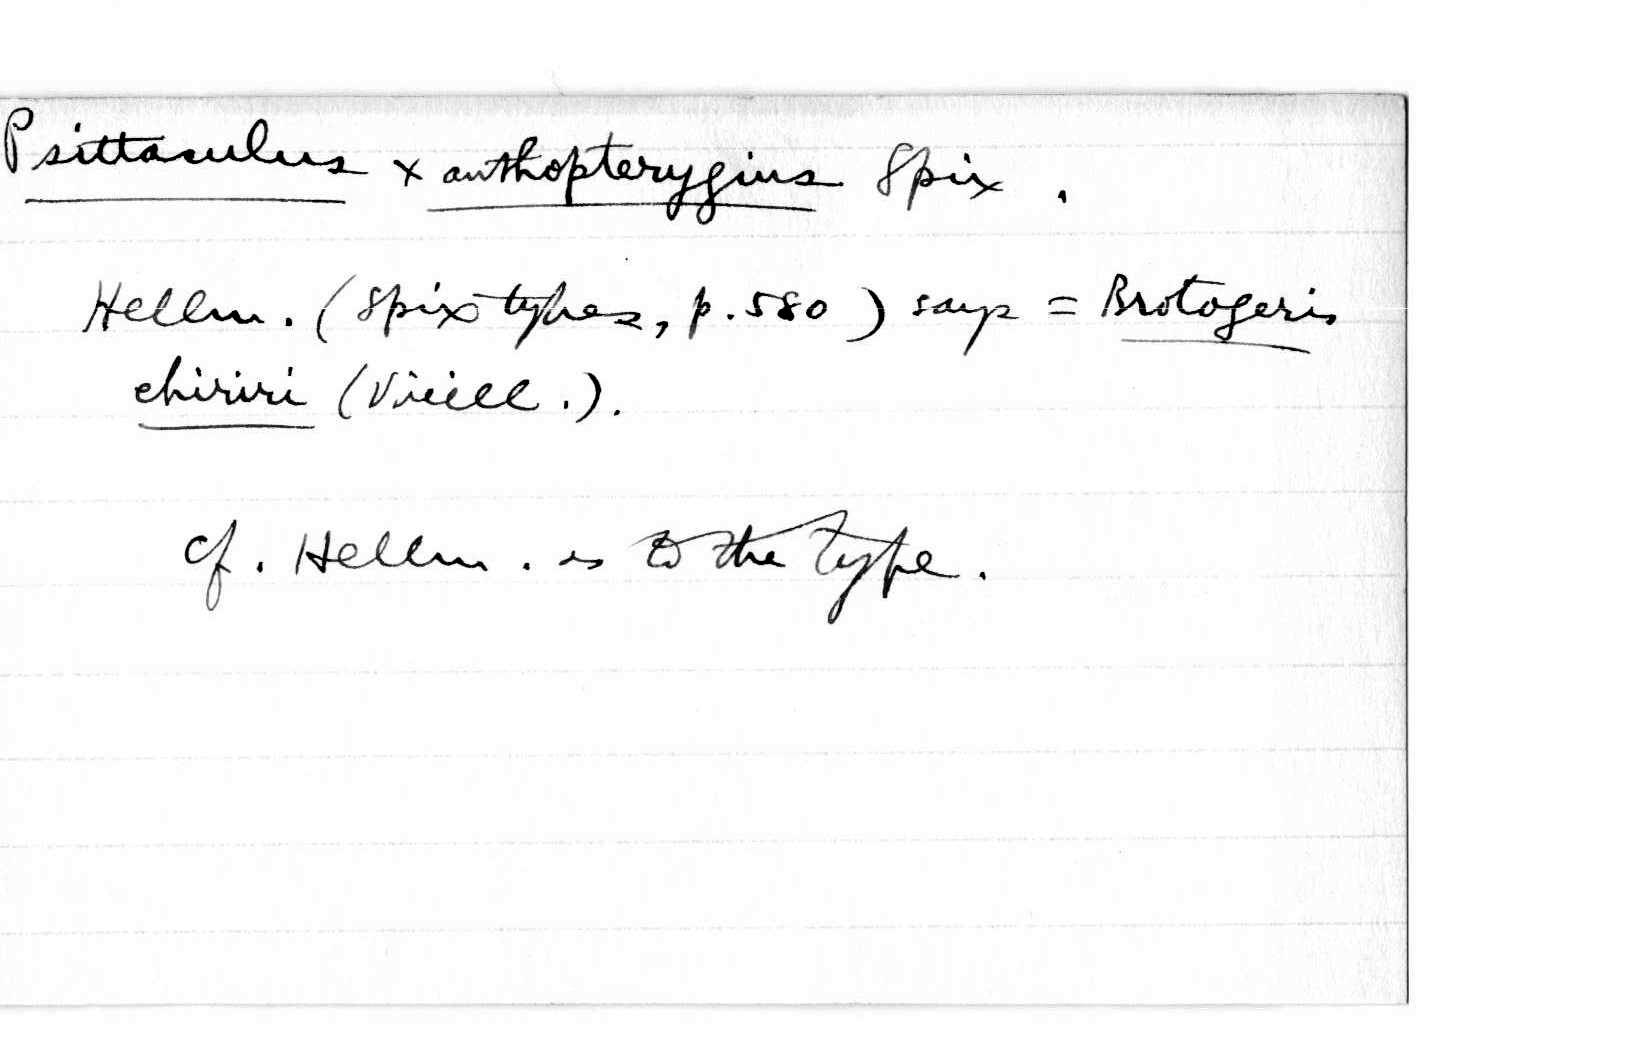 Psittaculus xanthopterygius Spix.
Hellm. (Spix types, p. 580) says = Brotogeris
chiriri (Vieill.).
cf. Hellm. as to the type.